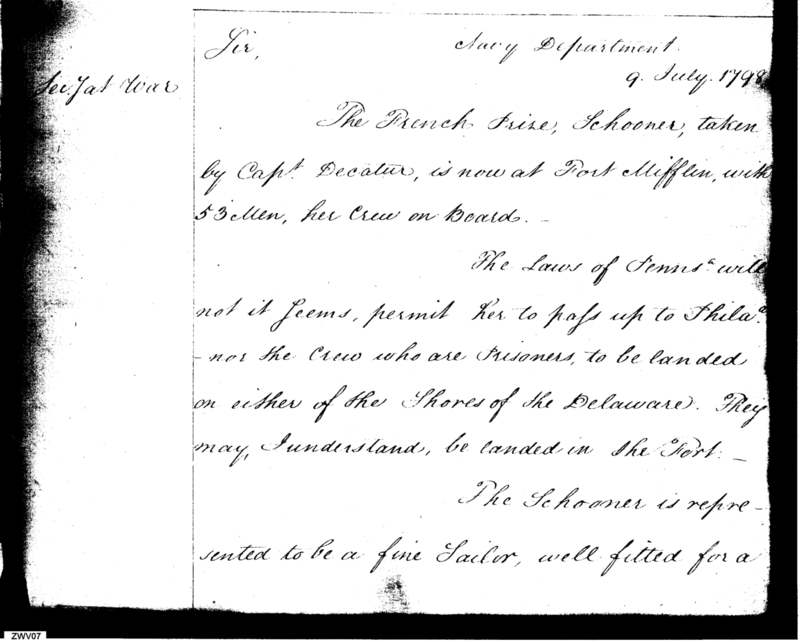 Navy Department.
Sir,
9. July. 1798
Secy at War
The French Prize, Schooner, taken
by Capt. Decatur, is now at Fort Mifflin, with
53 Men, her Crew on Board. -
The Laws of Pennsa. will
not it seems, permit her to pass up to Phila.
- nor the Crew who are Prisoners, to be landed
on either of the Shores of the Delaware. They
may, I understand, be landed in the Fort. -
The Schooner is repre-
sented to be a fine Sailor, well fitted for a
ZWV07